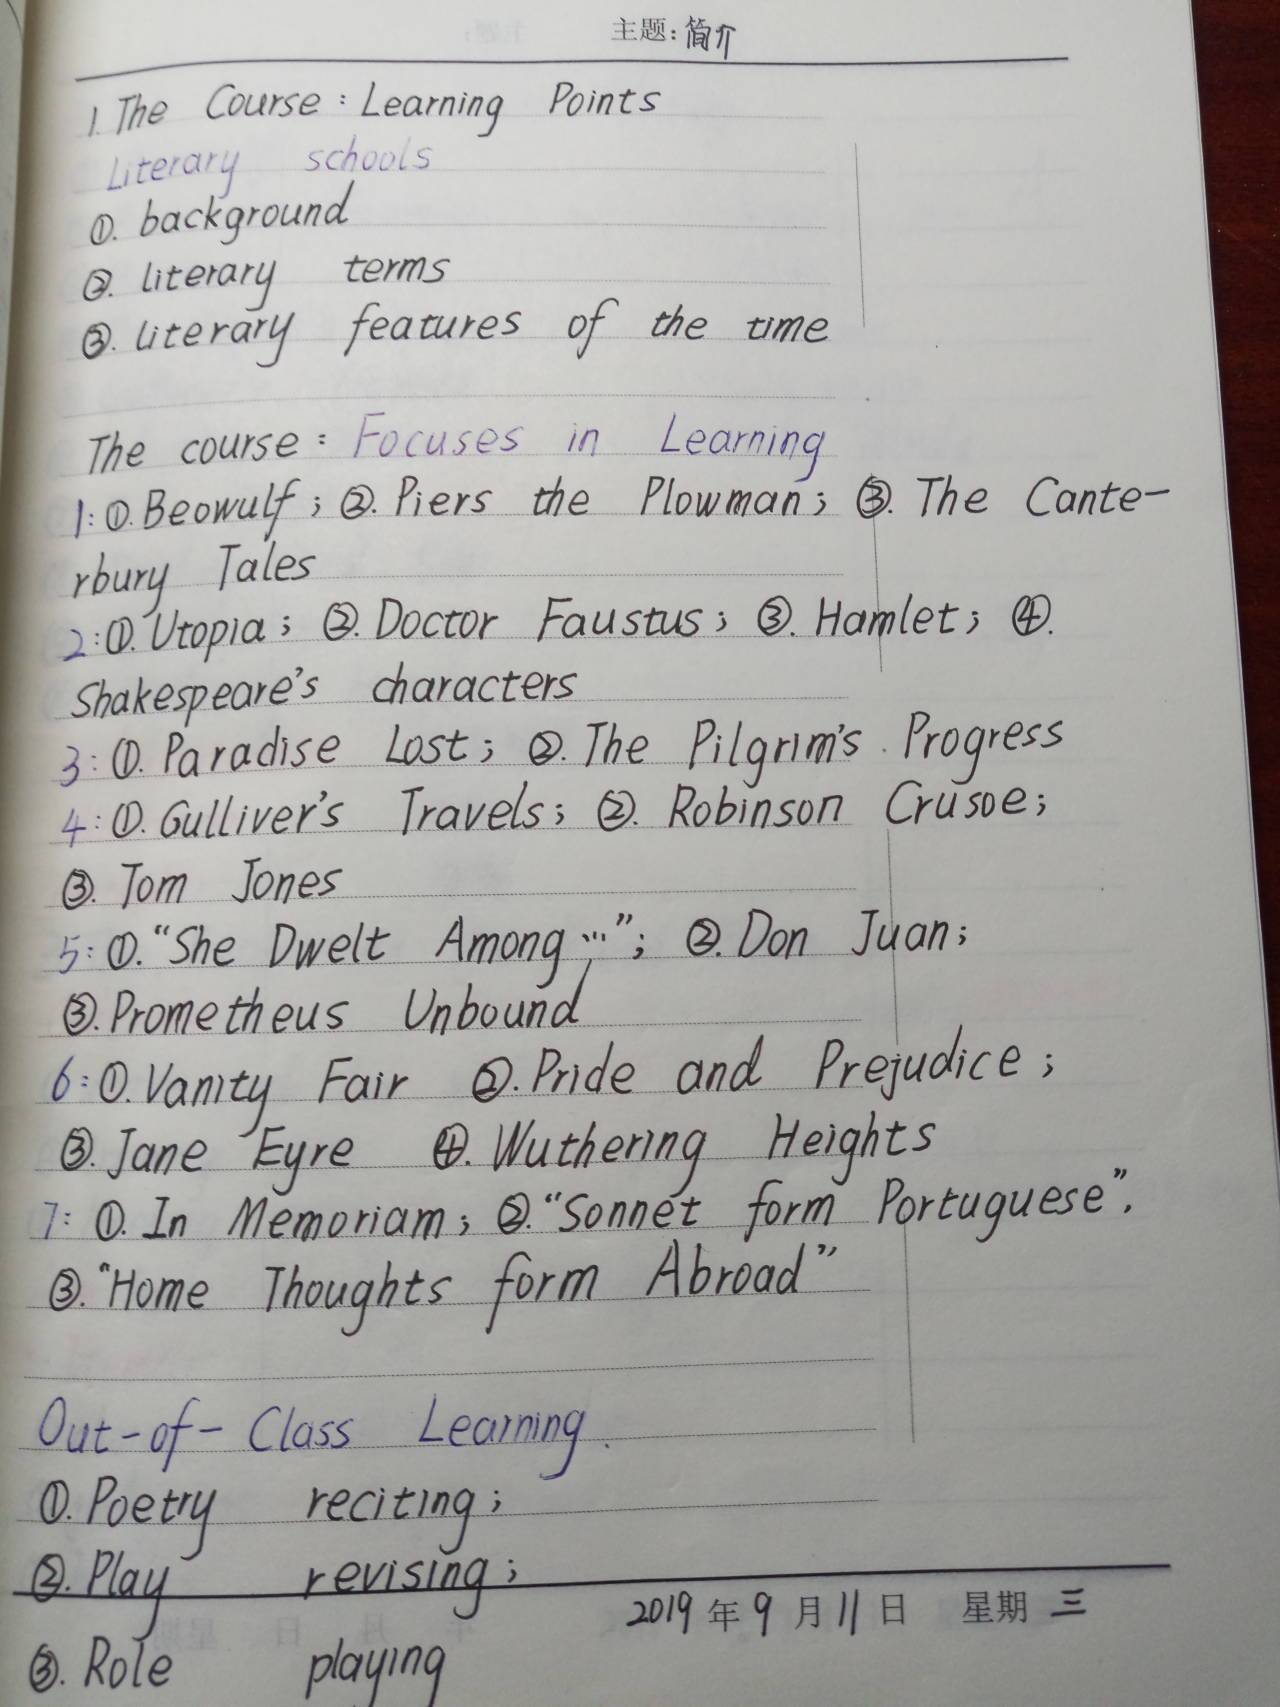 主题:简介
1. The Course: Learning Points
Literary schools
①. background
②. literary terms
③. literary features of the time
The course: Focuses in Learning
1: ①. Beowulf; ②. Piers the Plowman; ③. The Cante-
rbury Tales
2: ①. Utopia; ②. Doctor Faustus; ③. Hamlet; ④.
Shakespeare's characters
3: ①. Paradise Lost; ②. The Pilgrim's Progress
4: ①. Gulliver's Travels; ②. Robinson Crusoe;
③. Tom Jones
5: ①. “She Dwelt Among ...”; ②. Don Juan;
③. Prometheus Unbound
6: ①. Vanity Fair ②. Pride and Prejudice;
③. Jane Eyre ④. Wuthering Heights
7: ①. In Memoriam; ②. “Sonnet form Portuguese”.
③. “Home Thoughts form Abroad”
Out-of-Class Learning.
①. Poetry reciting;
②. Play revising;
2019年9月11日 星期三
③. Role playing